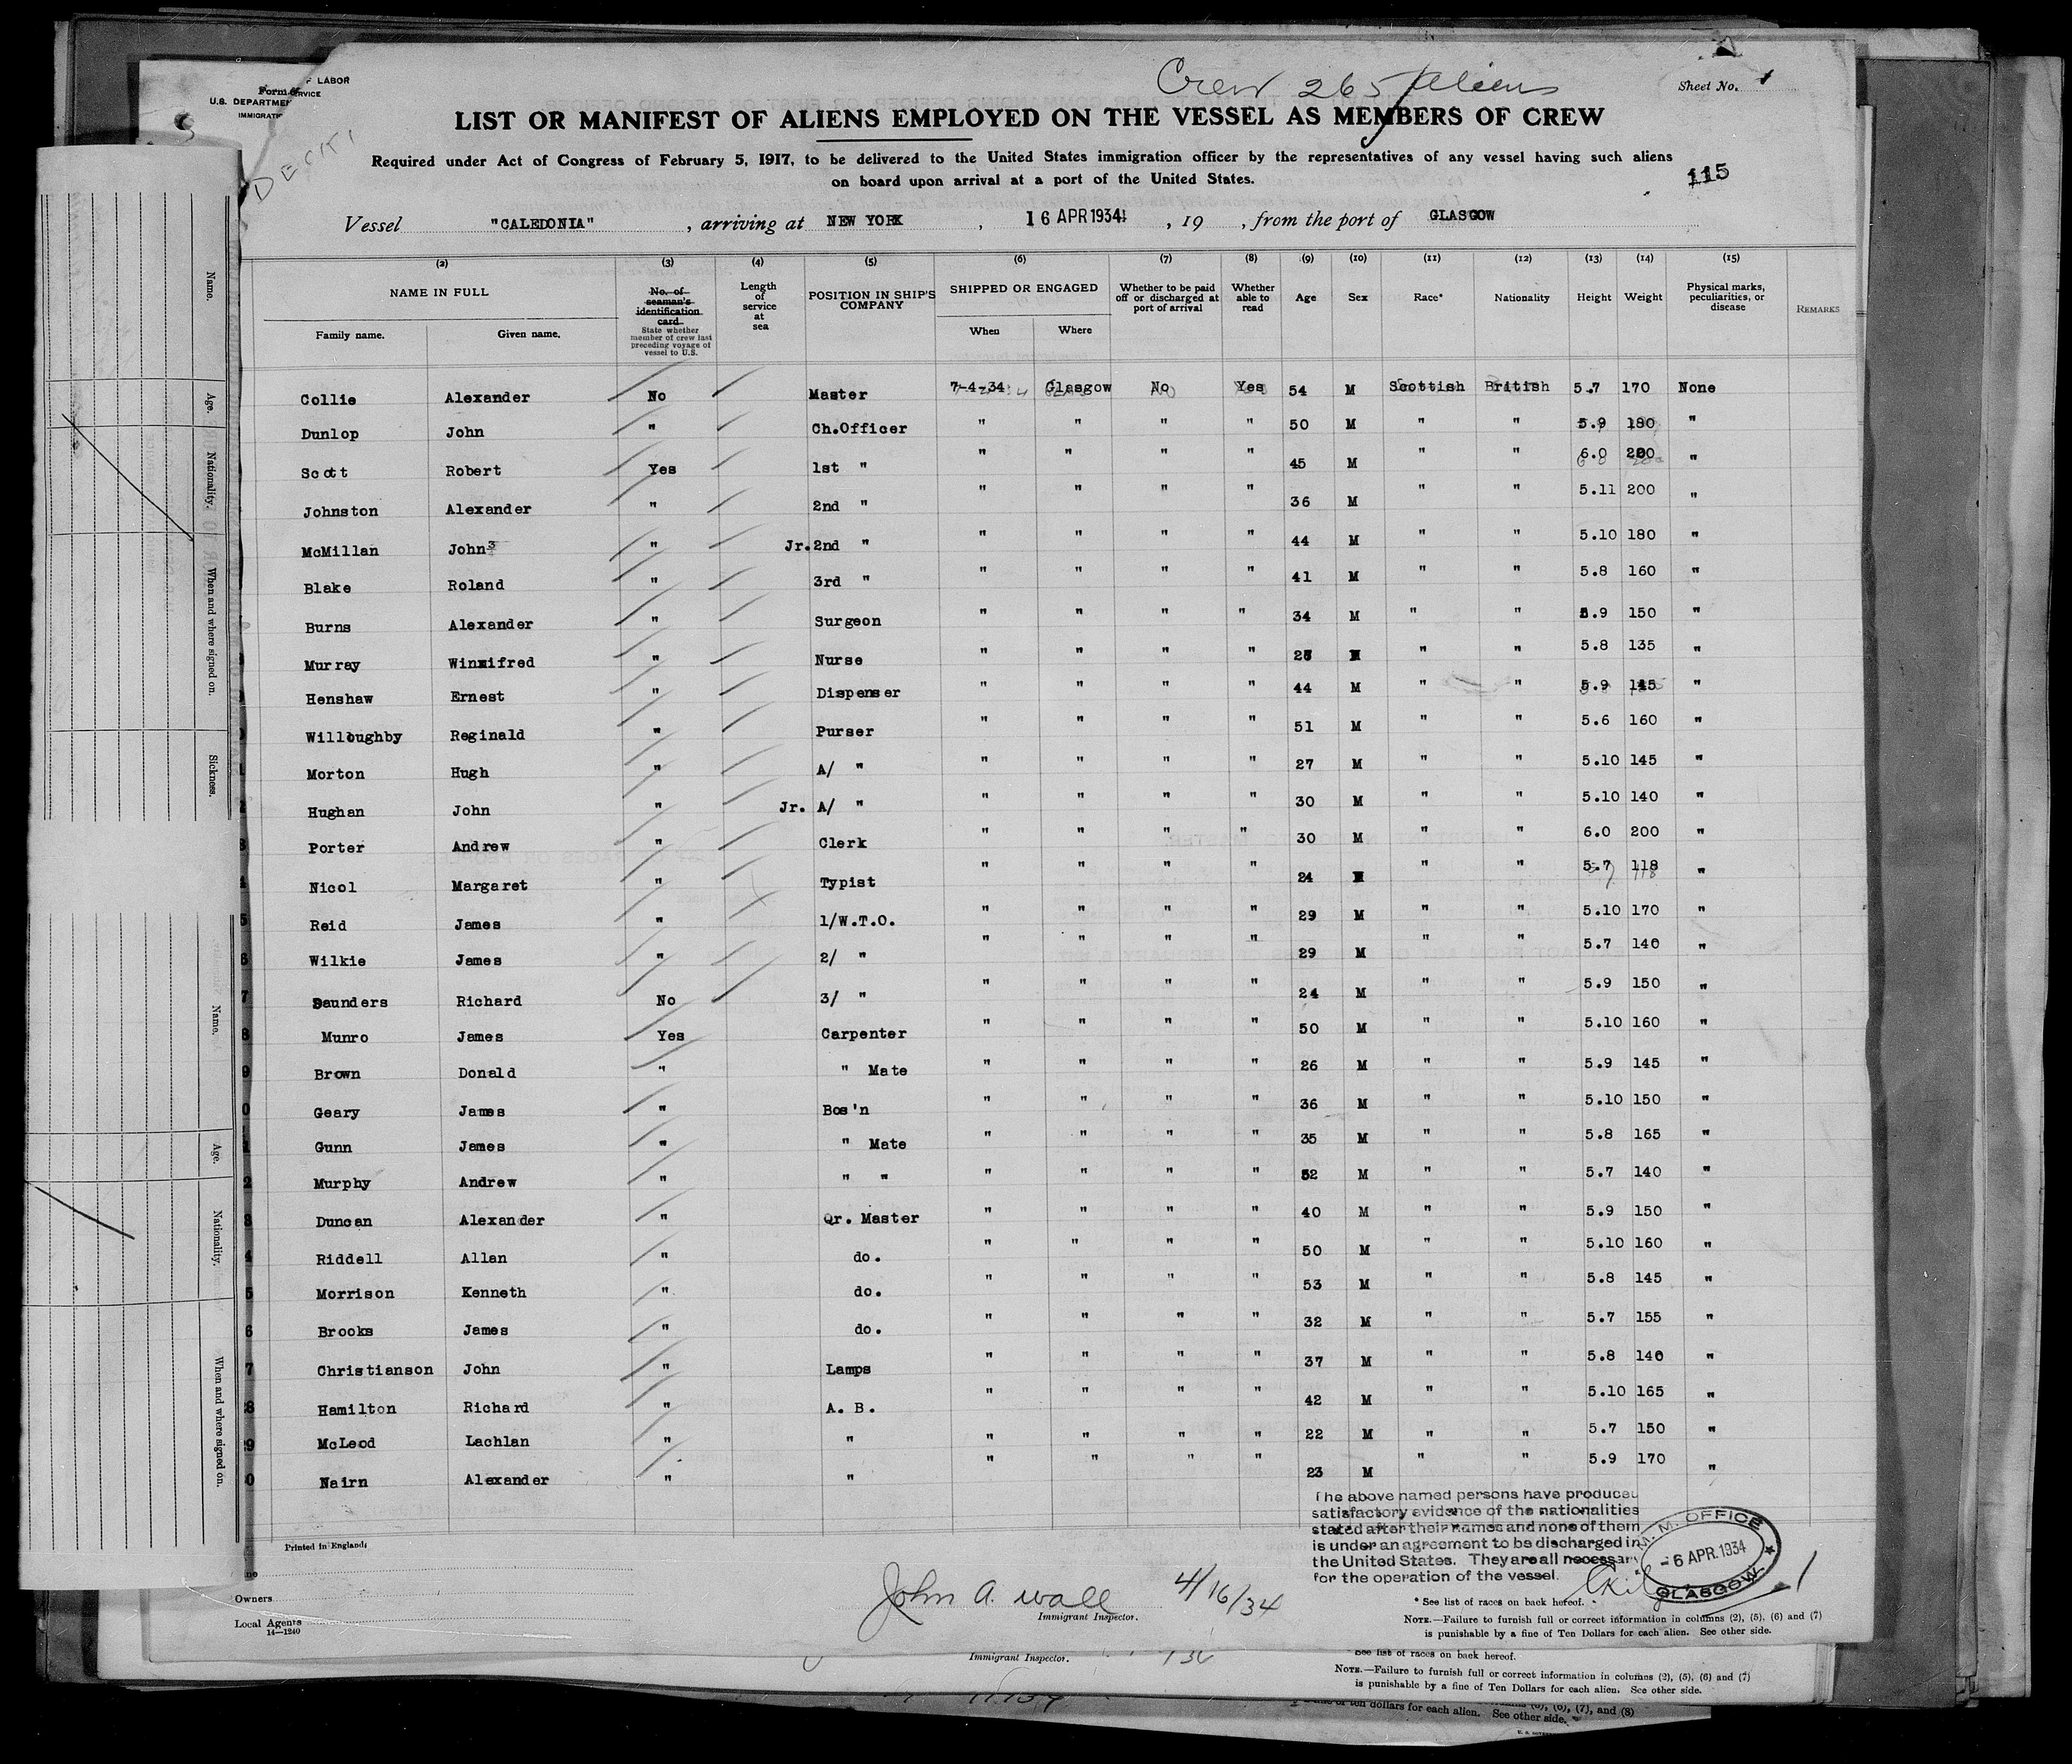 Crew 265 Aliens
Sheet No. 1
F LABOR
Form
SERVICE
U.S. DEPARTMEN
IMMIGRATI
LIST OR MANIFEST OF ALIENS EMPLOYED ON THE VESSEL AS MEMBERS OF CREW
Required under Act of Congress of February 5, 1917, to be delivered to the United States immigration officer by the representatives of any vessel having such aliens
on board upon arrival at a port of the United States.
115
Vessel "CALEDONIA", arriving at NEW YORK, 16 APR 1934, 19 , from the port of GLASGOW
(2) (3) (4) (5) (6) (7) (8) (9) (10) (11) (12) (13) (14) (15)
NAME IN FULL
Family name. Given name.
No. of seaman's identification card
State whether member of crew last preceding voyage of vessel to U.S.
Length of service at sea
POSITION IN SHIP'S COMPANY
SHIPPED OR ENGAGED
When Where
Whether to be paid off or discharged at port of arrival
Whether able to read
Age Sex Race* Nationality Height Weight
Physical marks, peculiarities, or disease
REMARKS
Collie Alexander No Master 7-4-34 Glasgow No Yes 54 M Scottish British 5.7 170 None
Dunlop John " Ch.Officer " " " " 50 M " " 5.9 180 "
Scott Robert Yes 1st " " " " " 45 M " " 6.0 200 "
Johnston Alexander " 2nd " " " " " 36 M " " 5.11 200 "
McMillan John " Jr.2nd " " " " " 44 M " " 5.10 180 "
Blake Roland " 3rd " " " " " 41 M " " 5.8 160 "
Burns Alexander " Surgeon " " " " 34 M " " 5.9 150 "
Murray Winnifred " Nurse " " " " " " 5.8 135 "
Henshaw Ernest " Dispenser " " " " 44 M " " 5.9 145 "
Willoughby Reginald " Purser " " " " 51 M " " 5.6 160 "
Morton Hugh " A/ " " " " " 27 M " " 5.10 145 "
Hughan John " Jr. A/ " " " " " 30 M " " 5.10 140 "
Porter Andrew " Clerk " " " " 30 M " " 6.0 200 "
Nicol Margaret " Typist " " " " 24 " " 5.7 118 "
Reid James " 1/W.T.O. " " " " 29 M " " 5.10 170 "
Wilkie James " 2/ " " " " " 29 M " " 5.7 140 "
Saunders Richard No 3/ " " " " " 24 M " " 5.9 150 "
Munro James Yes Carpenter " " " " 50 M " " 5.10 160 "
Brown Donald " " Mate " " " " 26 M " " 5.9 145 "
Geary James " Bos'n " " " " 36 M " " 5.10 150 "
Gunn James " " Mate " " " " 35 M " " 5.8 165 "
Murphy Andrew " " " " " " " 52 M " " 5.7 140 "
Duncan Alexander " Qr. Master " " " " 40 M " " 5.9 150 "
Riddell Allan " do. " " " " 50 M " " 5.10 160 "
Morrison Kenneth " do. " " " " 53 M " " 5.8 145 "
Brooks James " do. " " " " 32 M " " 5.7 155 "
Christianson John " Lamps " " " " 37 M " " 5.8 140 "
Hamilton Richard " A. B. " " " " 42 M " " 5.10 165 "
McLeod Lachlan " " " " " " 22 M " " 5.7 150 "
Nairn Alexander " " " " " " 23 M " " 5.9 170 "
The above named persons have produced
satisfactory evidence of the nationalities
stated after their names and none of them
is under an agreement to be discharged in
the United States. They are all necessary
for the operation of the vessel.
M. M. OFFICE
-6 APR. 1934
GLASGOW
Printed in England
Owners
Local Agents
14—1240
John A. Wall 4/16/34
Immigrant Inspector.
* See list of races on back hereof.
NOTE.—Failure to furnish full or correct information in columns (2), (5), (6) and (7)
is punishable by a fine of Ten Dollars for each alien. See other side.
Immigrant Inspector.
See list of races on back hereof.
NOTE.—Failure to furnish full or correct information in columns (2), (5), (6) and (7)
is punishable by a fine of Ten Dollars for each alien. See other side.
of ten dollars for each alien. See other side.
(6), (7), and (8)
Name.
Age.
Nationality.
When and where signed on.
Sickness.
Name.
Age.
Nationality.
When and where signed on.